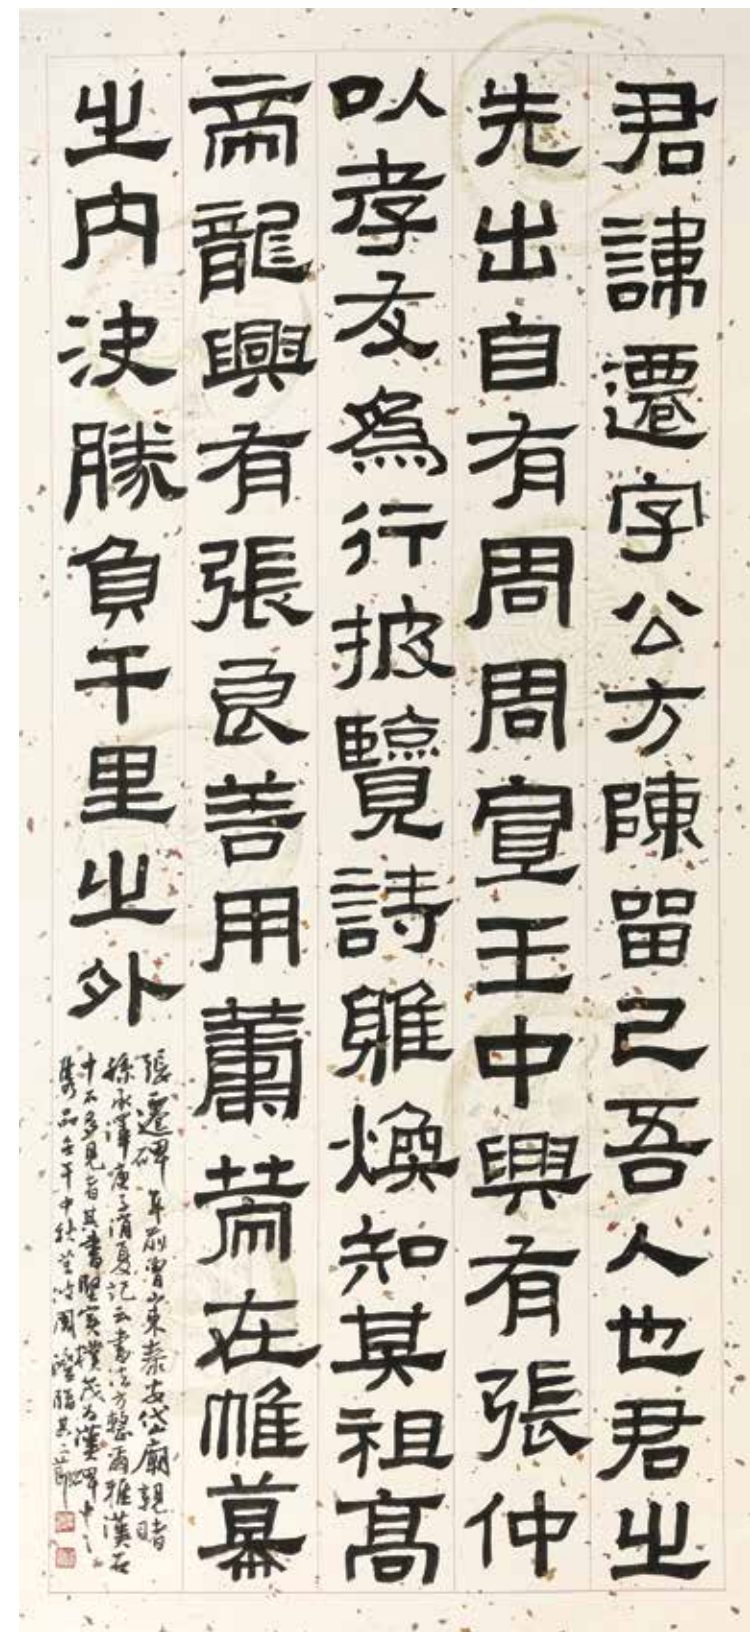 君諱遷字公方陳留己吾人也君之
先出自有周周宣王中興有張仲
以孝友為行披覽詩雅煥知其祖高
帝龍興有張良善用籌策在帷幕
之內決勝負千里之外
張遷碑年前曾山東泰安岱廟親睹
孫承澤庚子消夏記云書法方整爾雅漢石
中不多見者其書堅實樸茂為漢碑中之
雋品壬午中秋周臨其一節